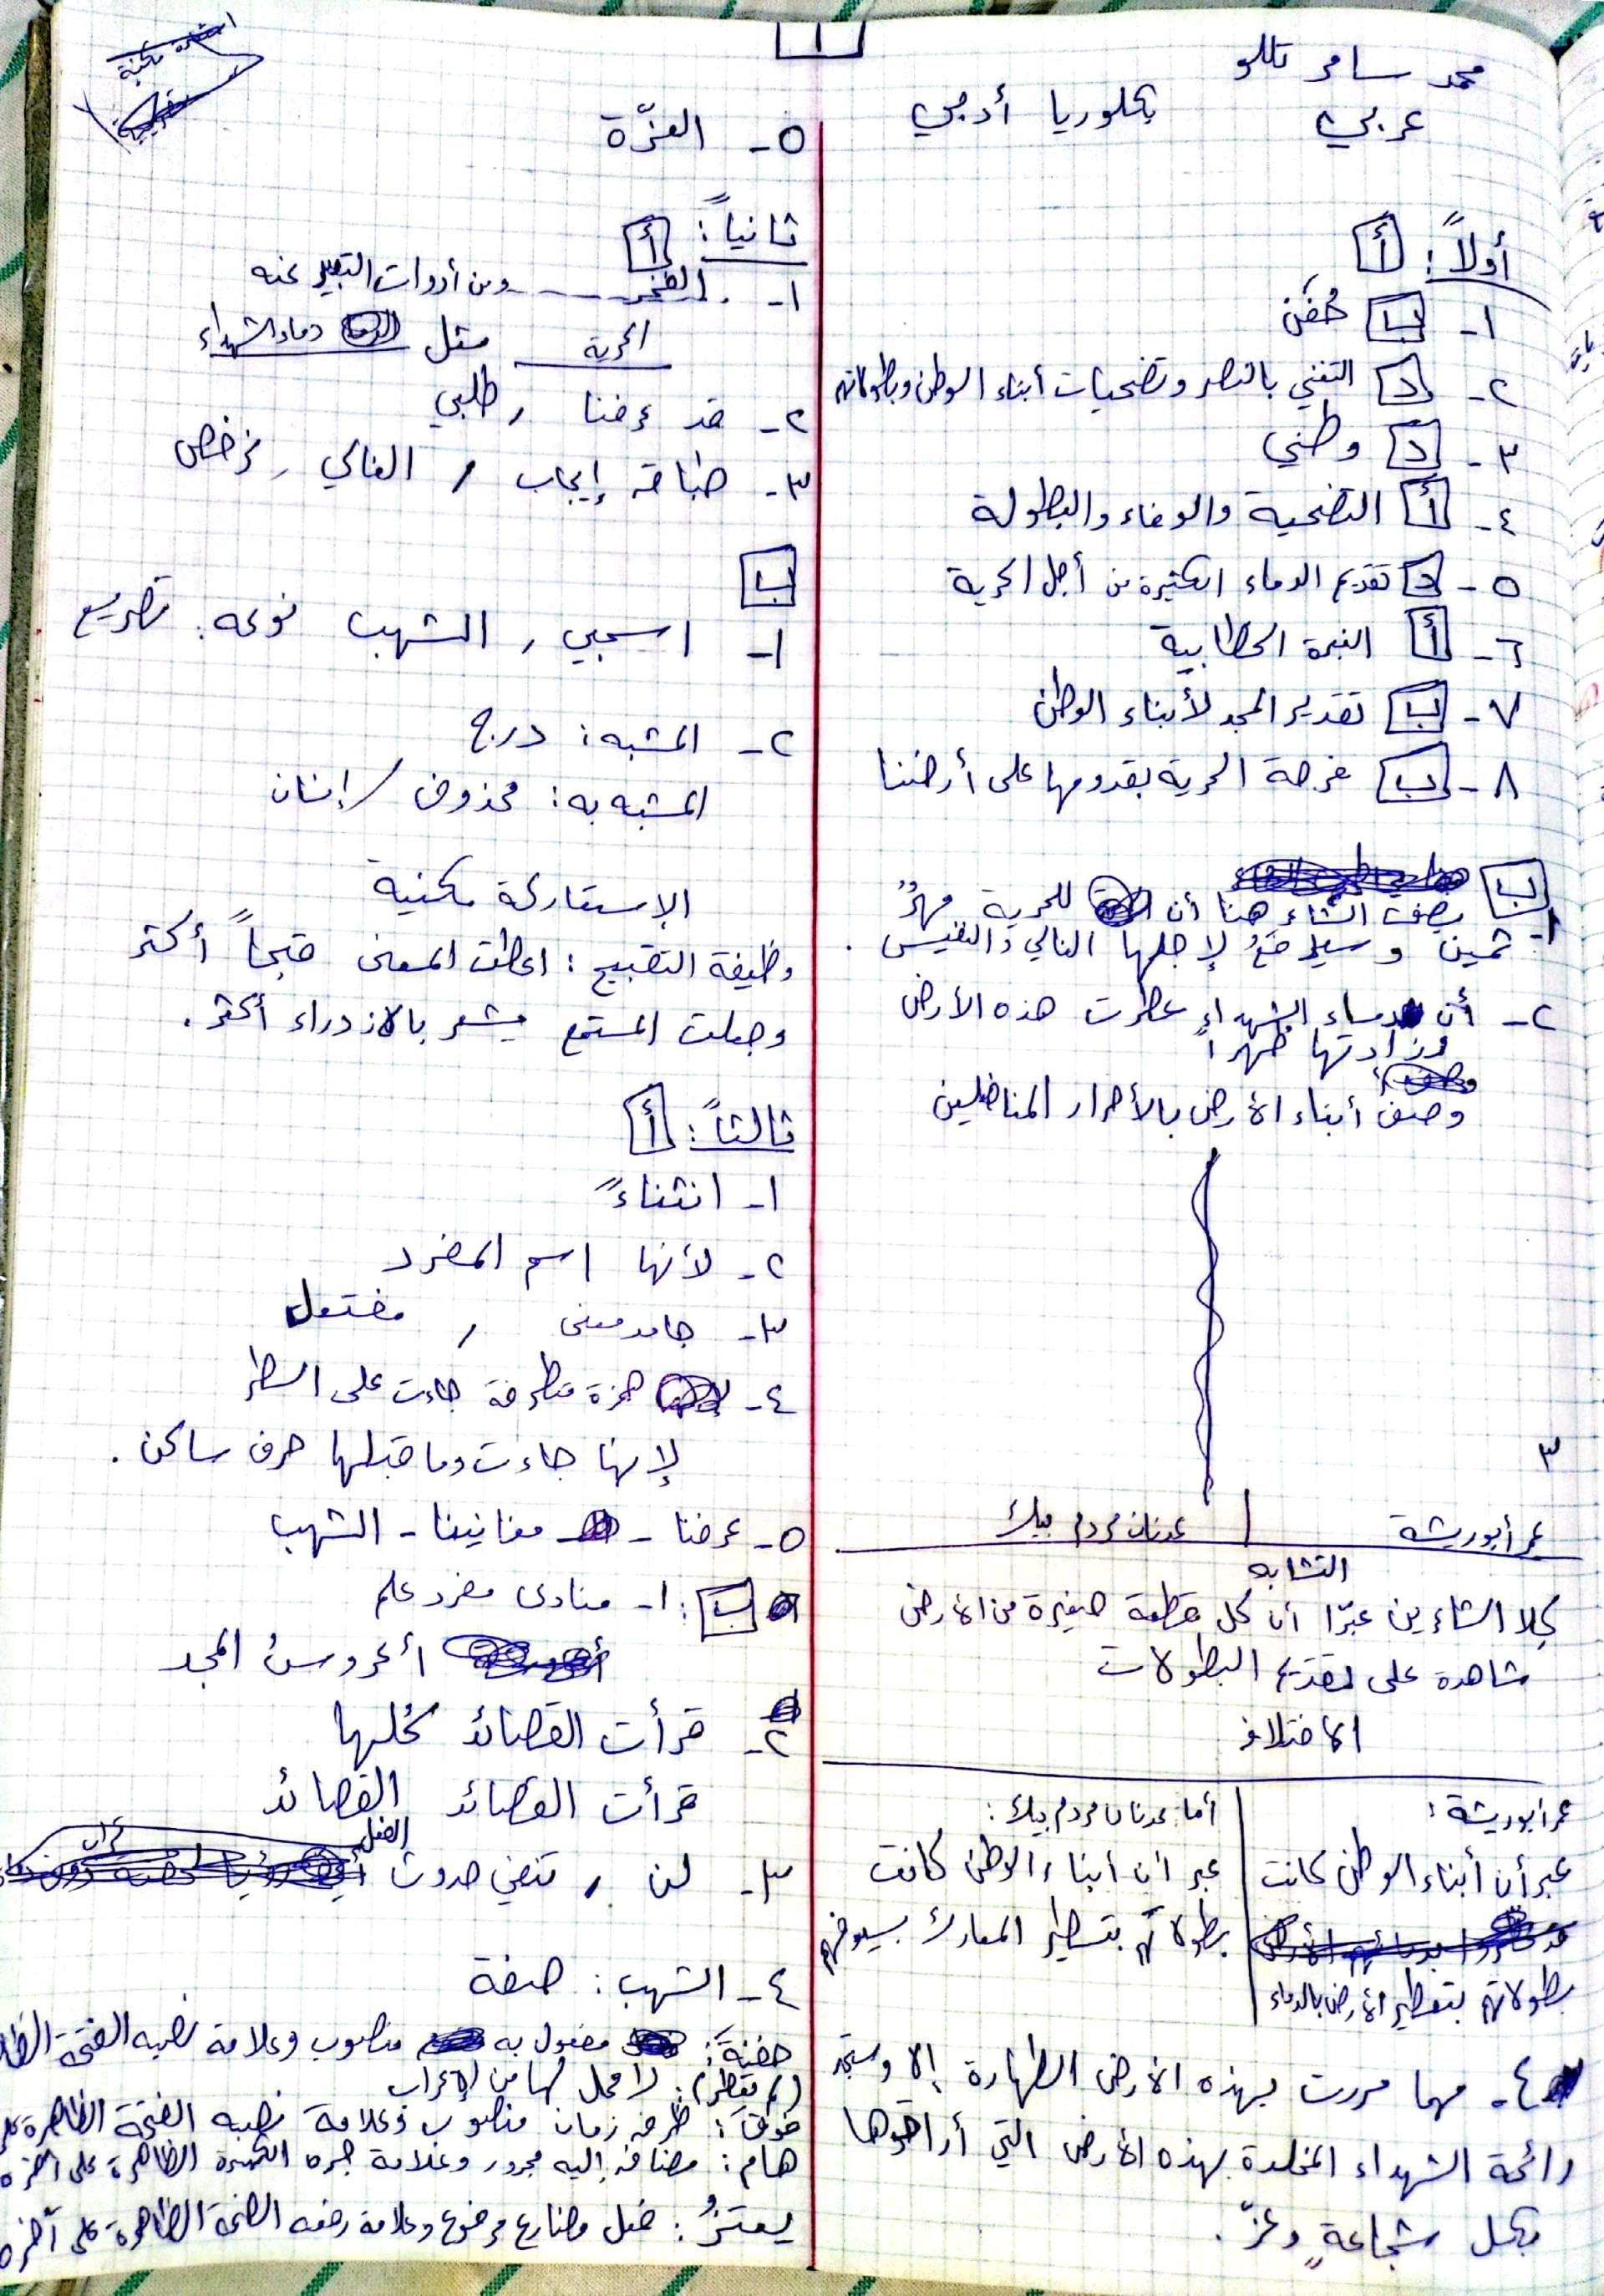 ١
محمد سامر تللو
عربي
بكلوريا أدبي
أولاً: أ
١- ب حُفَن
٢- د التغني بالنصر وتضحيات أبناء الوطن وبطولاتهم
٣- د وطني
٤- أ التضحية والوفاء والبطولة
٥- د تقديم الدماء الكثيرة من أجل الحرية
٦- أ النبرة الخطابية
٧- ب تقدير المجد لأبناء الوطن
٨- ب فرحة الحرية بقدومها على أرضنا
ب
١- يصف الشاعر هنا أن للحرية مهرٌ
ثمين وسيدفعُ لإجلها الغالي والنفيس.
٢- أن دماء الشهداء عطرت هذه الأرض
وزادتها طهراً
وصف أبناء الأرض بالأحرار المناضلين
٣
عمر أبو ريشة | عدنان مردم بيك
التشابه
كلا الشاعرين عبّرا أن كل قطعة صغيرة من الأرض
شاهدة على تقديم البطولات
الاختلاف
عمر أبو ريشة: | أما عدنان مردم بيك:
عبر أن أبناء الوطن كانت | عبر أن أبناء الوطن كانت
بطولاتهم بتعطير الأرض بالدماء | بطولاتهم بتسطير المعارك بسيوفهم
٤- مهما مررت بهذه الأرض الطهارة إلا وستجد
رائحة الشهداء المخلدة بهذه الأرض التي أراقوها
بكل شجاعةٍ وعزّ.
٥- العزّة
ثانياً: أ
١- الفخر ومن أدوات التعبير عنه
الحرية مثل دماء الشهداء
٢- قد عرفنا , طلبي
٣- طباق إيجاب , الغالي , رخص
ب
١- اسحبي , الشهب نوعه: تصريع
٢- المشبه: درج
المشبه به: محذوف / إنسان
الإستعارة مكنية
وظيفة التقبيح: اعطت المعنى قبحاً أكثر
وجعلت المستمع يشعر بالازدراء أكثر.
ثالثاً: أ
١- انثناءً
٢- لأنها اسم المفرد
٣- جامد معنى , مفتعل
٤- همزة متطرفة جاءت على السطر
لإنها جاءت وما قبلها حرف ساكن.
٥- عرفنا - مغانينا - الشهب
ب: ١- منادى مفرد علم
أعروسُ المجد
٢- قرأت القصائد كُلها
قرأت القصائد القصائد
٣- لن , تنفي حدوث الفعل
٤- الشهب: صفة
حفنةً: مفعول به منصوب وعلامة نصبه الفتحة
(لم تعطر): لا محل لها من الإعراب
فوقَ: ظرف زمان منصوب وعلامة نصبه الفتحة الظاهرة
هامِ: مضاف إليه مجرور وعلامة جره الكسرة الظاهرة على آخره
يعتزُّ: فعل مضارع مرفوع وعلامة رفعه الضمة الظاهرة على آخره